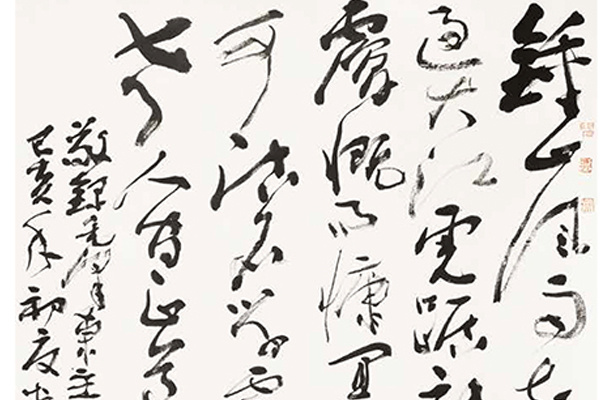 鍾山風雨起
過大江虎踞
覆慨而慷宜
可沽名學霸
老人間正道
敬錄毛澤東主
己亥年初夏